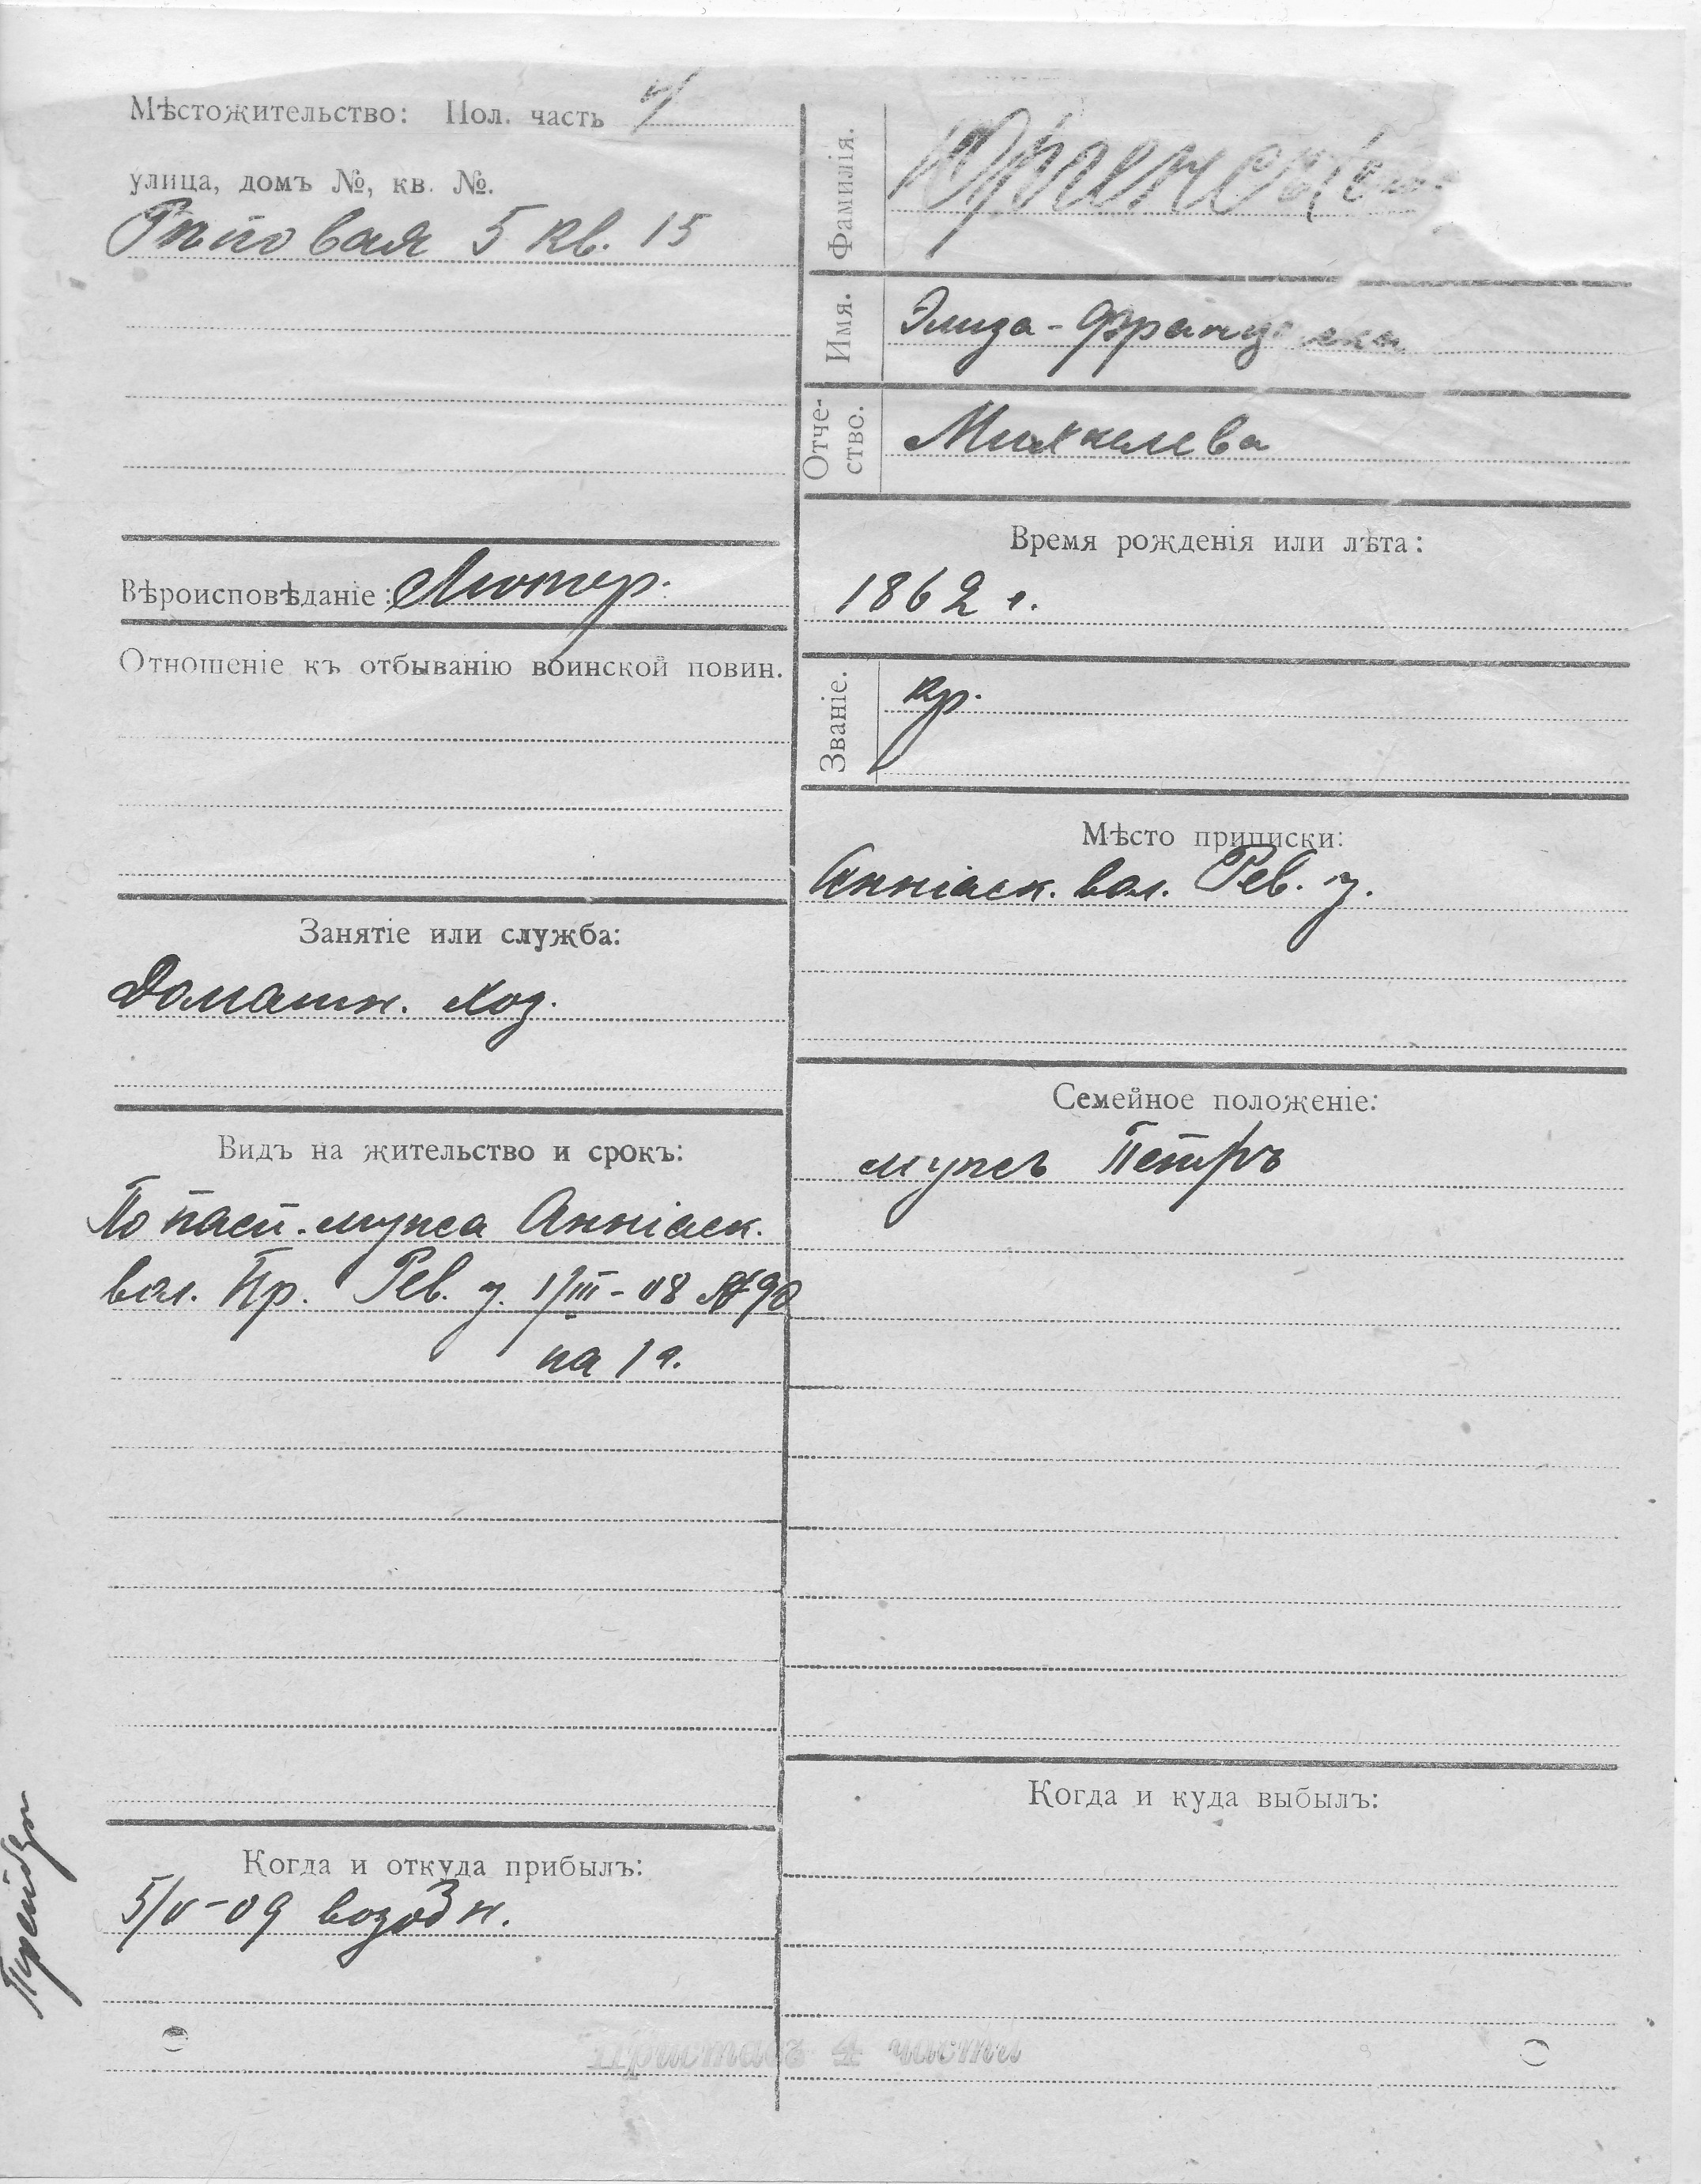 Мѣстожительство: Пол. часть 4
улица, домъ №, кв. №.
Рѣповая 5 кв. 15
Вѣроисповѣданіе: Лютер.
Отношеніе къ отбыванію воинской повин.
Занятіе или служба:
Домашн. хоз.
Видъ на жительство и срокъ:
По пасп. мужа Анніаск.
вол. Кр. Рев. у. 1/III-08 №90
на 1 г.
Когда и откуда прибылъ:
5/V-09 возобн.
Фамилія.
Имя. Элиза-Француска
Отче-
ство. Михкелева
Время рожденія или лѣта:
1862 г.
Званіе. кр.
Мѣсто приписки:
Анніаск. вол. Рев. у.
Семейное положеніе:
мужъ Петръ
Когда и куда выбылъ:
Приставъ 4 части